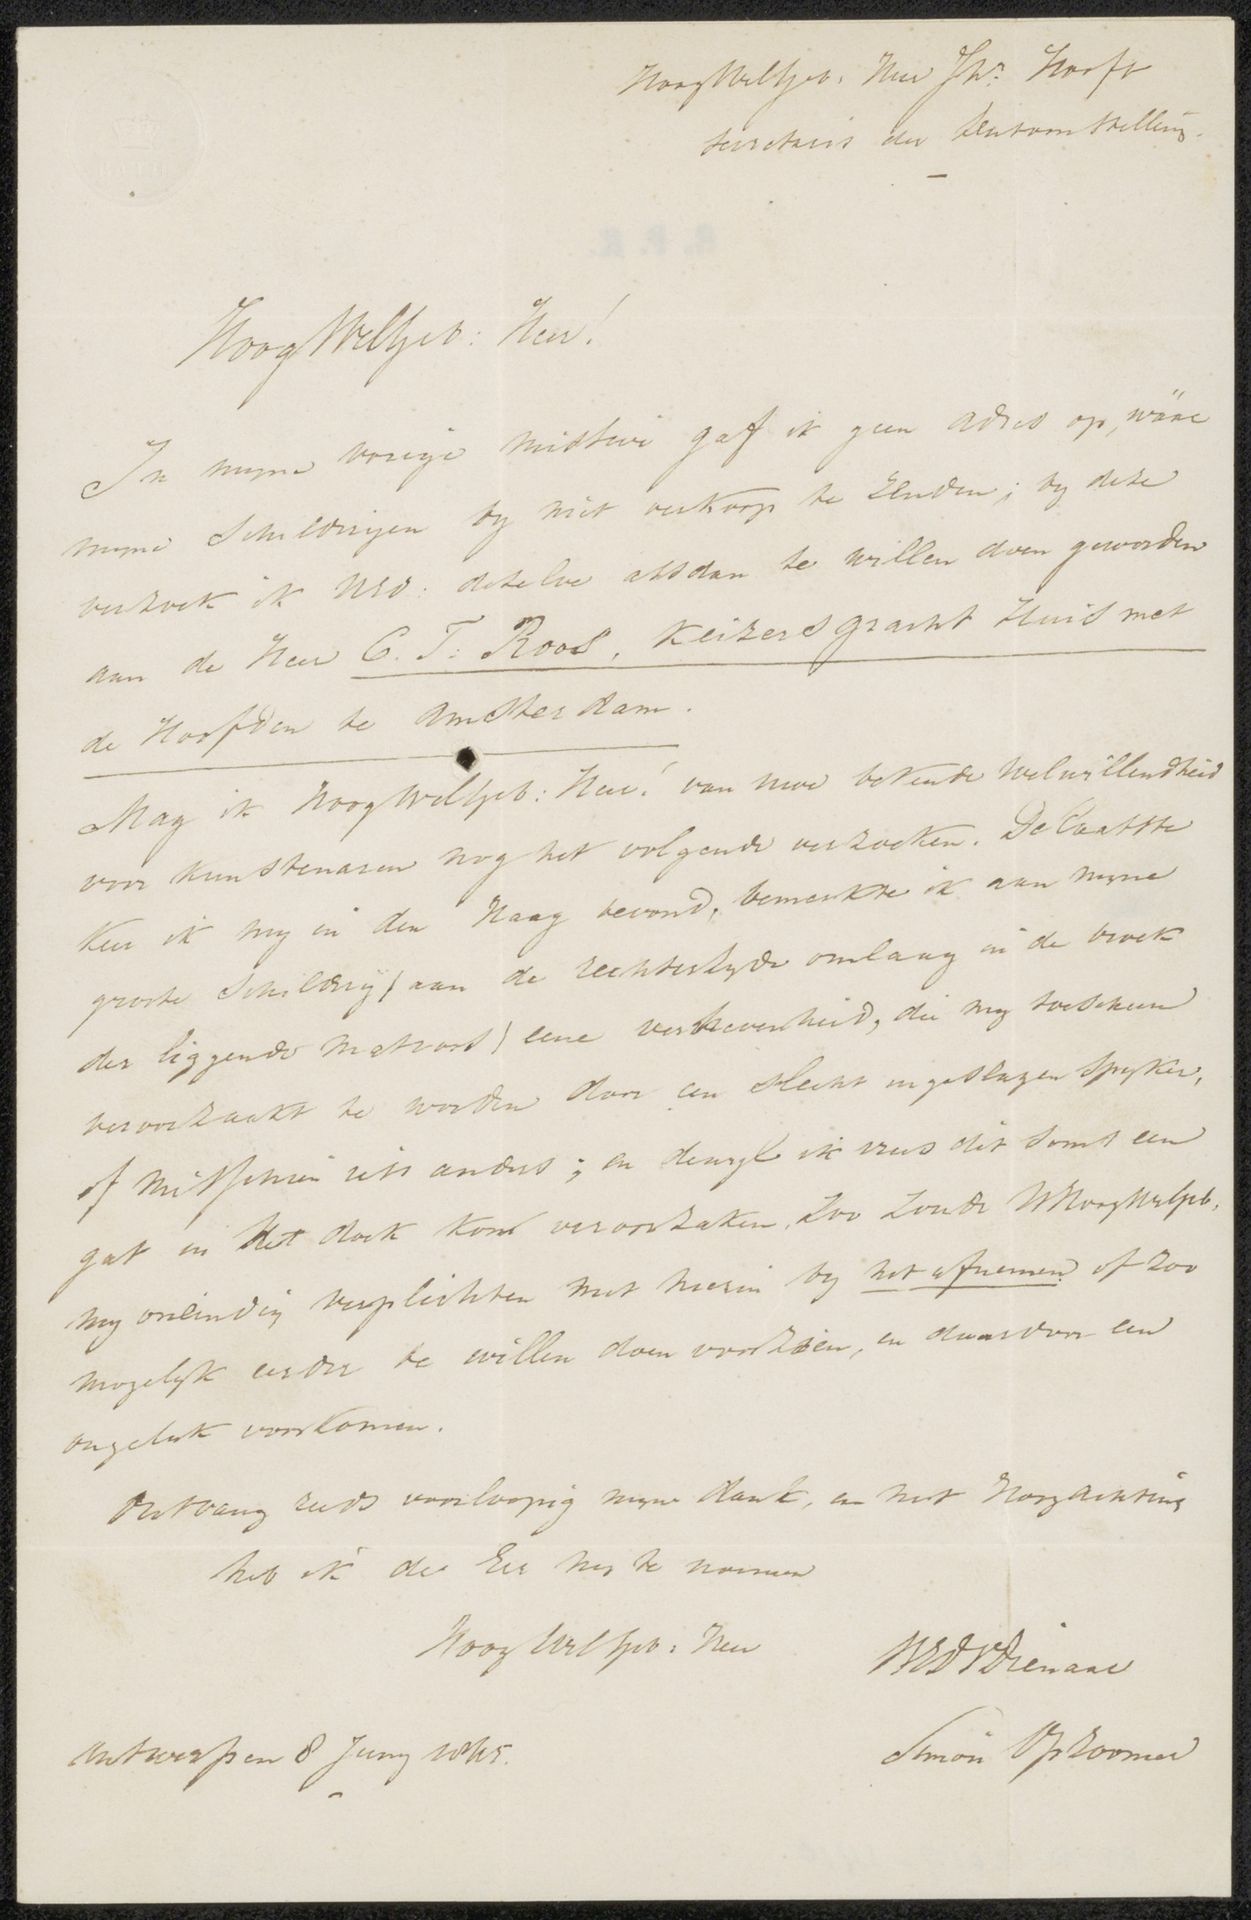 HoogWelgeb: Heer Jhr. Hooft
secretaris der tentoonstelling.
HoogWelgeb: Heer!
In myne vorige missive gaf ik geen adres op, waar
myne schilderyen by niet verkoop te zenden; by deze
verzoek ik UEd: dezelve alsdan te willen doen geworden
aan de Heer C. F. Roos, Keizersgracht Huis met
de Hoofden te Amsterdam.
Mag ik HoogWelgeb: Heer! van uwe bekende welwillendheid
voor kunstenaren nog het volgende verzoeken. De laatste
keer ik my in den Haag bevond, bemerkte ik aan myne
groote schildery (aan de rechterzyde omlaag in de broek
der liggende matroos) eene verhevenheid, die my toescheen
veroorzaakt te worden door een slecht ingeslagen spyker,
of misschien iets anders; en dewyl ik vrees dit soms een
gat in het doek kon veroorzaken, zoo zoude UHoogWelgeb.
my oneindig verplichten met hierin by het afnemen of zoo
mogelyk eerder te willen doen voorzien, en daardoor een
ongeluk voorkomen.
Ontvang reeds voorloopig myne dank, en met Hoogachting
heb ik de Eer my te noemen
HoogWelgeb: Heer
UEDWDienaar
Antwerpen 8 Juny 1845.
Simon Opzoomer